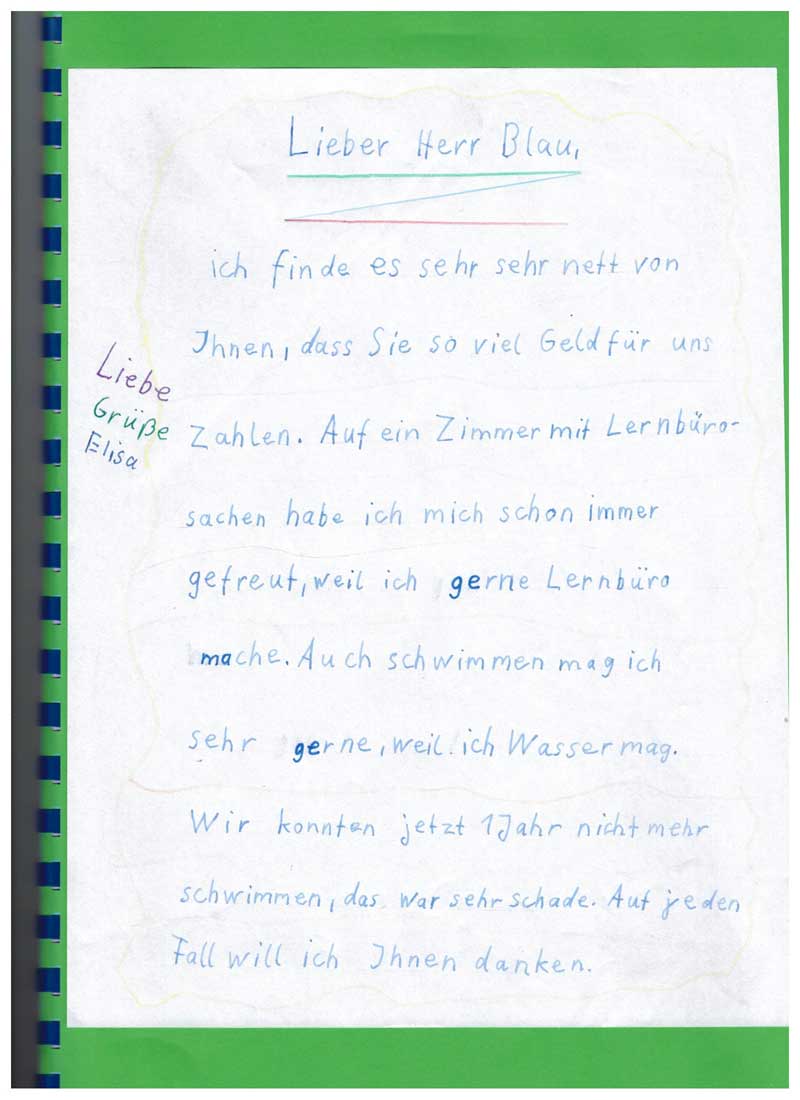 Lieber Herr Blau,
ich finde es sehr sehr nett von
Ihnen, dass Sie so viel Geld für uns
Zahlen. Auf ein Zimmer mit Lernbüro-
sachen habe ich mich schon immer
gefreut, weil ich gerne Lernbüro
mache. Auch schwimmen mag ich
sehr gerne, weil ich Wasser mag.
Wir konnten jetzt 1 Jahr nicht mehr
schwimmen, das war sehr schade. Auf jeden
Fall will ich Ihnen danken.
Liebe
Grüße
Elisa